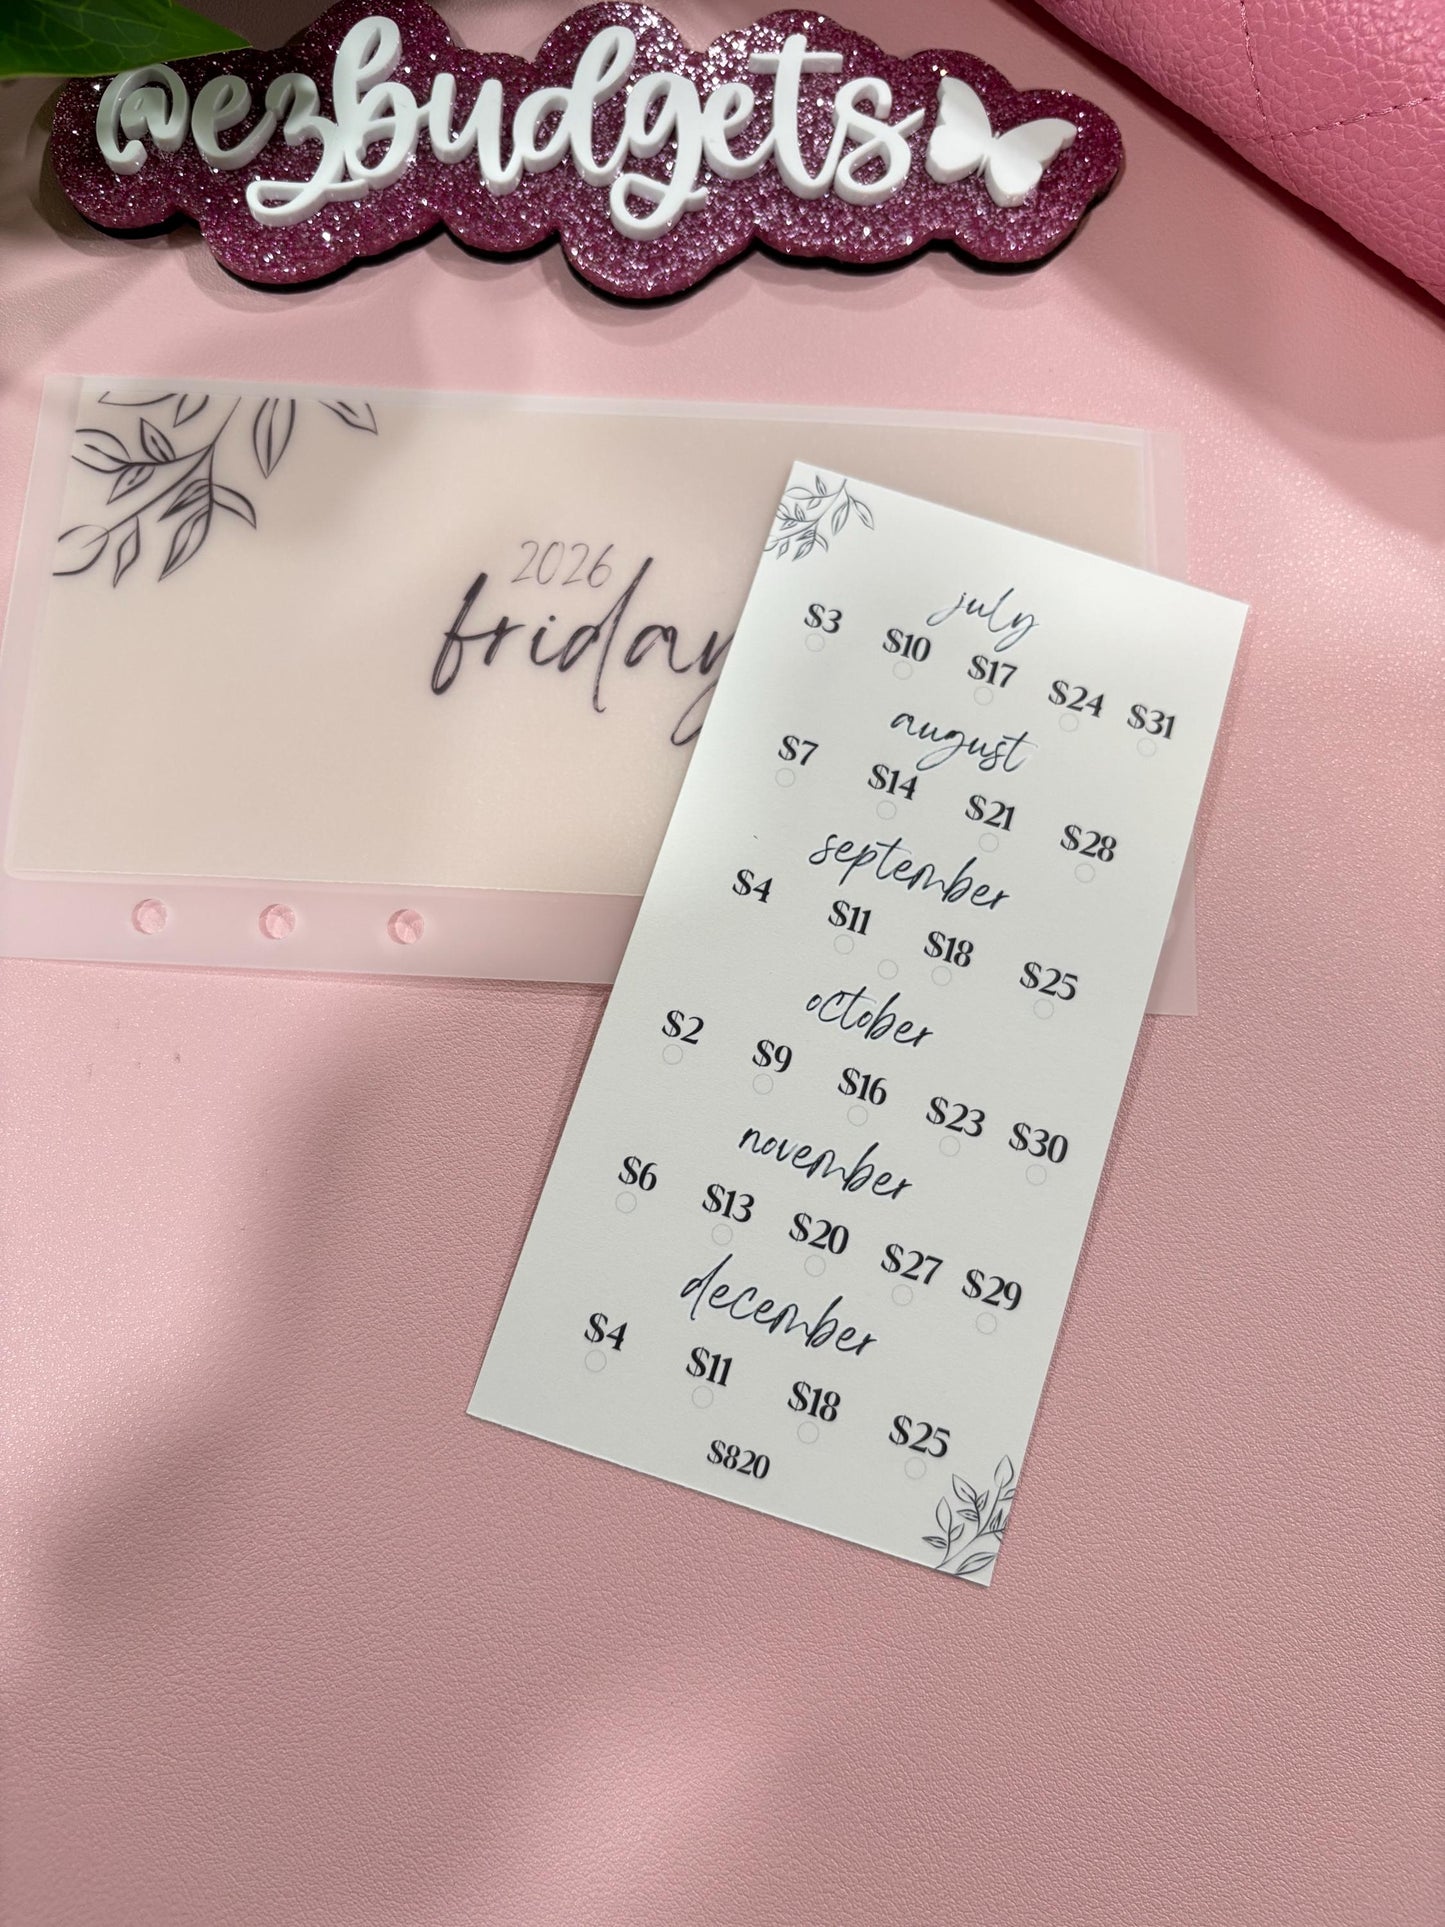 @ezbudgets
2026
friday
july
$3 $10 $17 $24 $31
august
$7 $14 $21 $28
september
$4 $11 $18 $25
october
$2 $9 $16 $23 $30
november
$6 $13 $20 $27 $29
december
$4 $11 $18 $25
$820